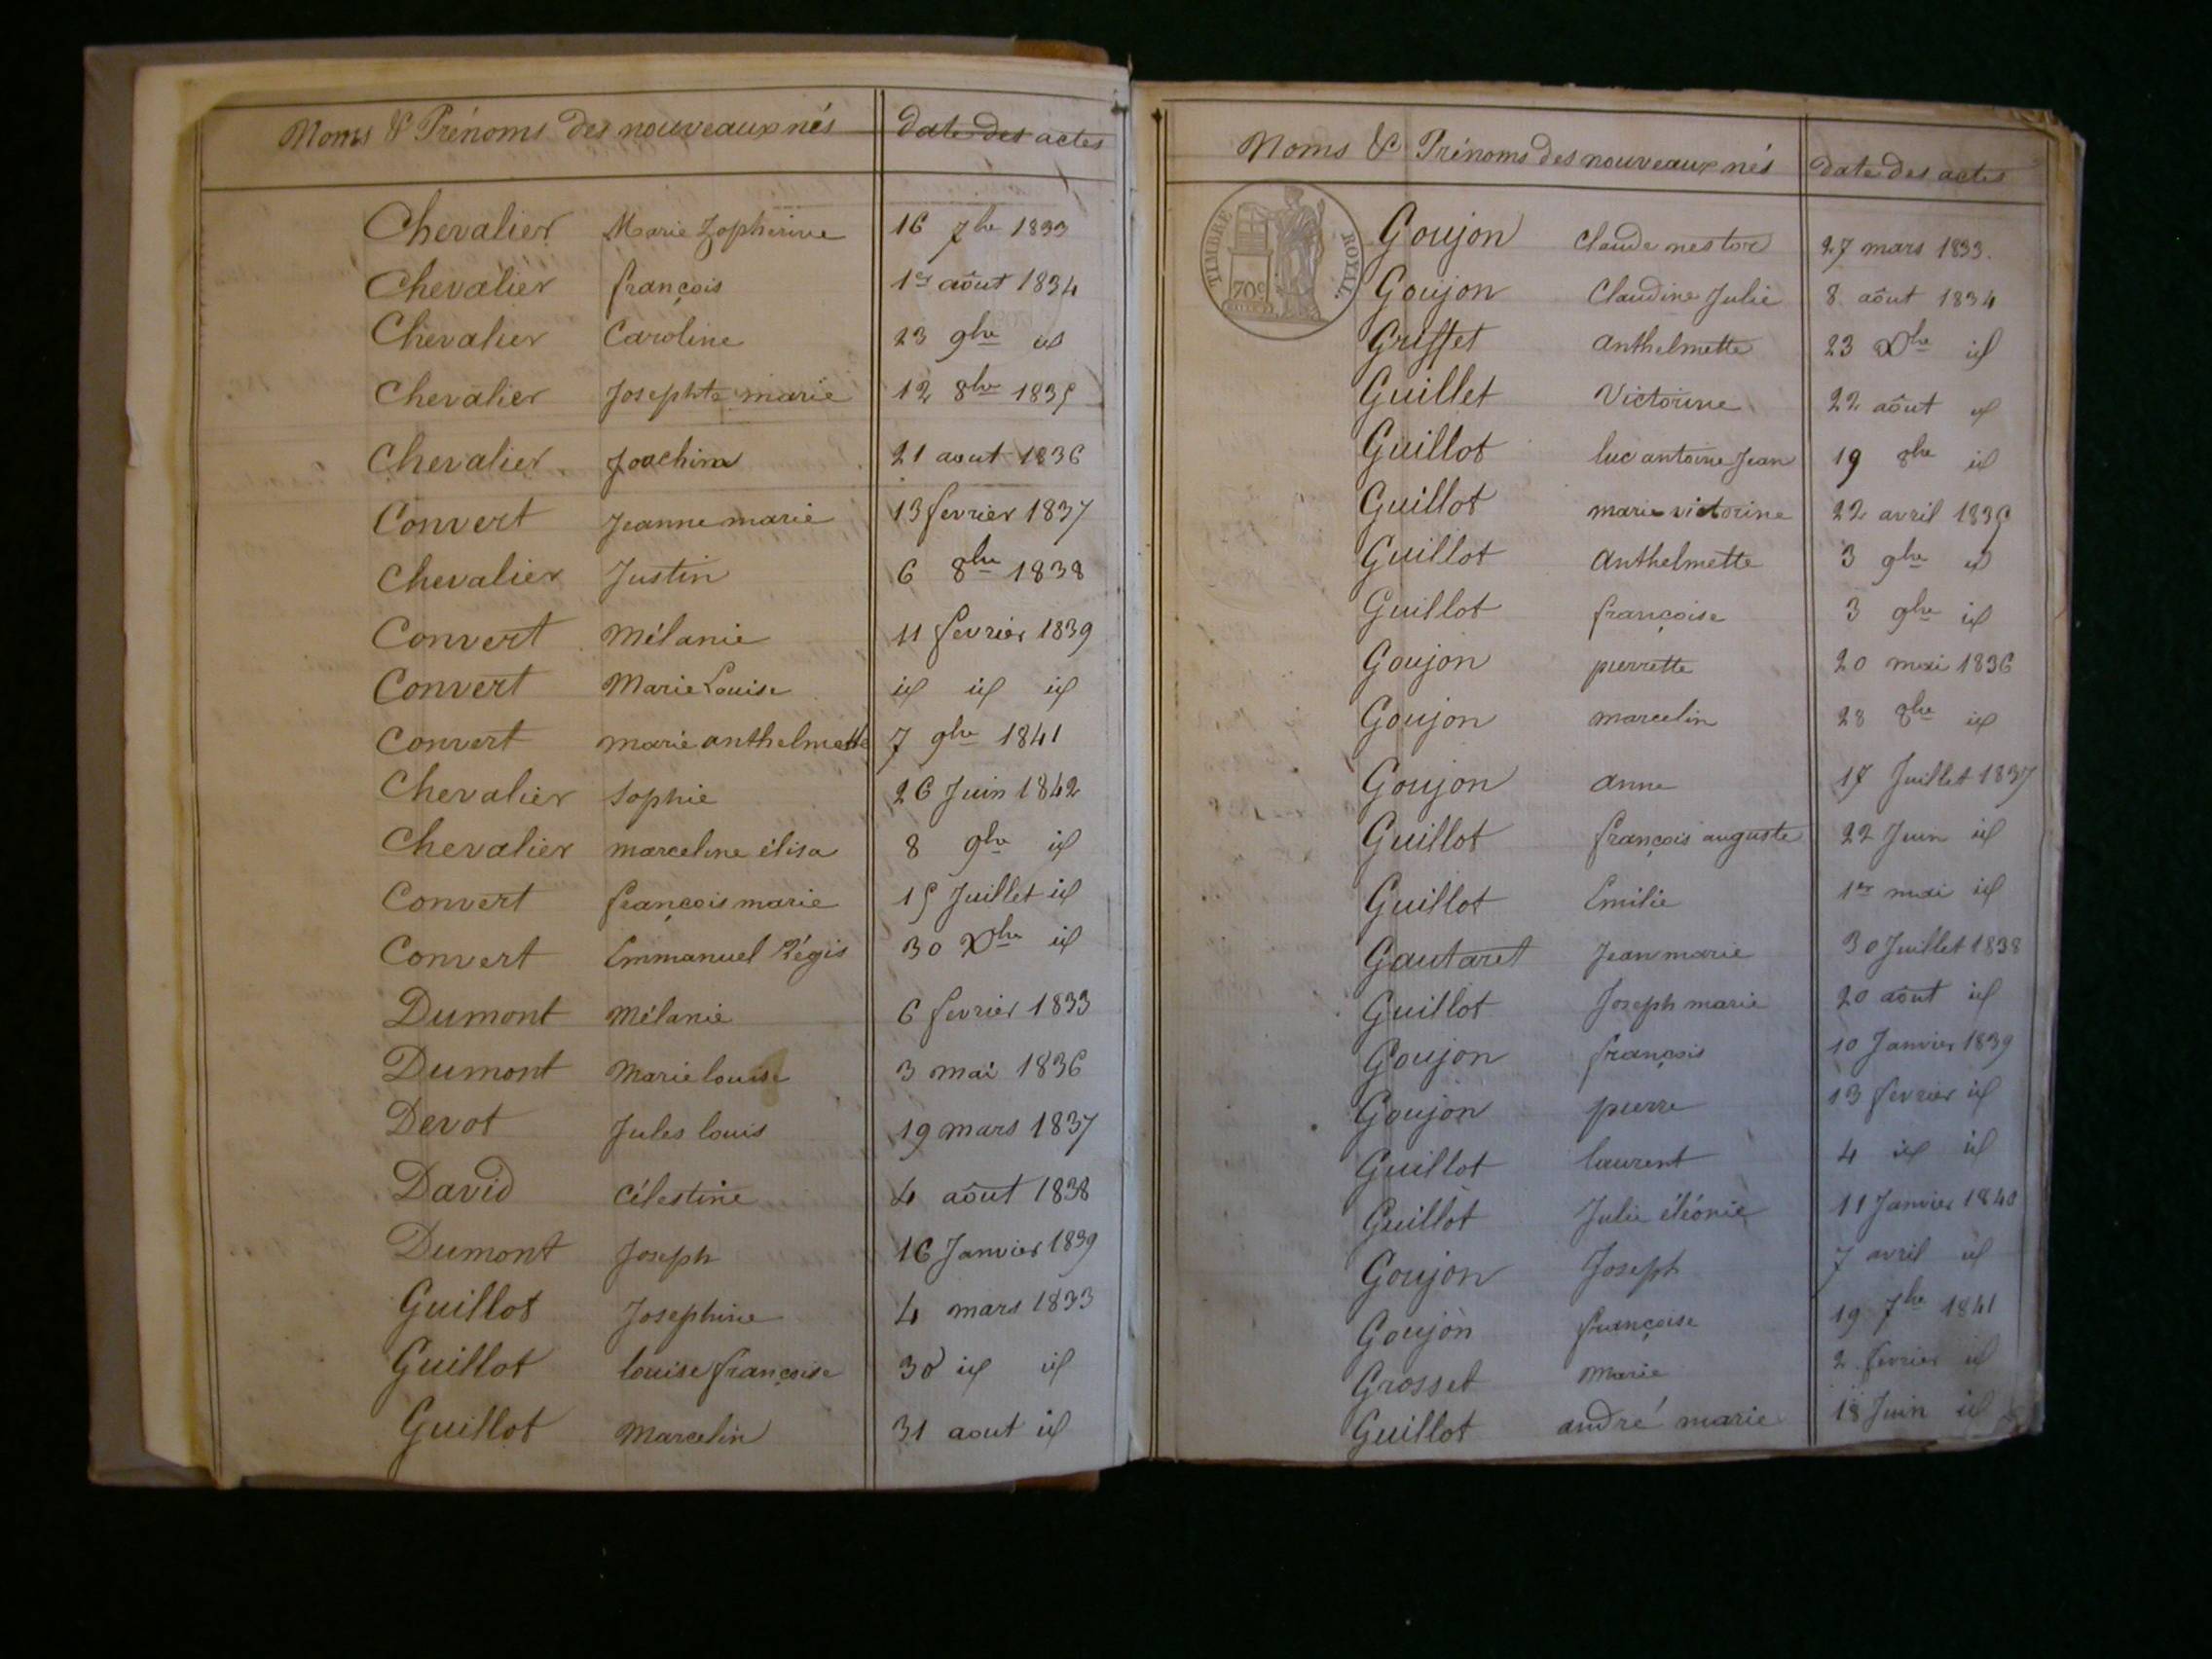 Noms & Prénoms des nouveaux nés date des actes
Chevalier Marie Zopherine 16 7bre 1833
Chevalier françois 1er aôut 1834
Chevalier Caroline 23 9bre id
Chevalier Josephte marie 12 8bre 1835
Chevalier Joachim 21 aout 1836
Convert Jeanne marie 13 fevrier 1837
Chevalier Justin 6 8bre 1838
Convert Mélanie 11 fevrier 1839
Convert Marie Louise id id id
Convert marie anthelmette 7 9bre 1841
Chevalier Sophie 26 Juin 1842
Chevalier marceline élisa 8 9bre id
Convert françois marie 15 Juillet id
Convert Emmanuel Régis 30 Xbre id
Dumont Mélanie 6 fevrier 1833
Dumont Marie louise 3 mai 1836
Devot Jules louis 19 mars 1837
David Célestine 4 aôut 1838
Dumont Joseph 16 Janvier 1839
Guillot Josephine 4 mars 1833
Guillot louise françoise 30 id id
Guillot Marcelin 31 aout id
Noms & Prénoms des nouveaux nés date des actes
TIMBRE ROYAL.
70c
Goujon Claude nestor 27 mars 1833.
Goujon Claudine Julie 8 aôut 1834
Griffet anthelmette 23 Xbre id
Guillet Victorine 22 aôut id
Guillot luc antoine Jean 19 8bre id
Guillot marie victorine 22 avril 1835
Guillot Anthelmette 3 9bre id
Guillot françoise 3 9bre id
Goujon pierrette 20 mai 1836
Goujon marcelin 28 8bre id
Goujon anne 17 Juillet 1837
Guillot françois auguste 22 Juin id
Guillot Emilie 1er mai id
Gautaret Jean marie 30 Juillet 1838
Guillot Joseph marie 20 aôut id
Goujon françois 10 Janvier 1839
Goujon pierre 13 fevrier id
Guillot laurent 4 id id
Guillot Julie éléonie 11 Janvier 1840
Goujon Joseph 7 avril id
Goujon françoise 19 7bre 1841
Grosset Marie 2 fevrier id
Guillot andré marie 18 Juin id